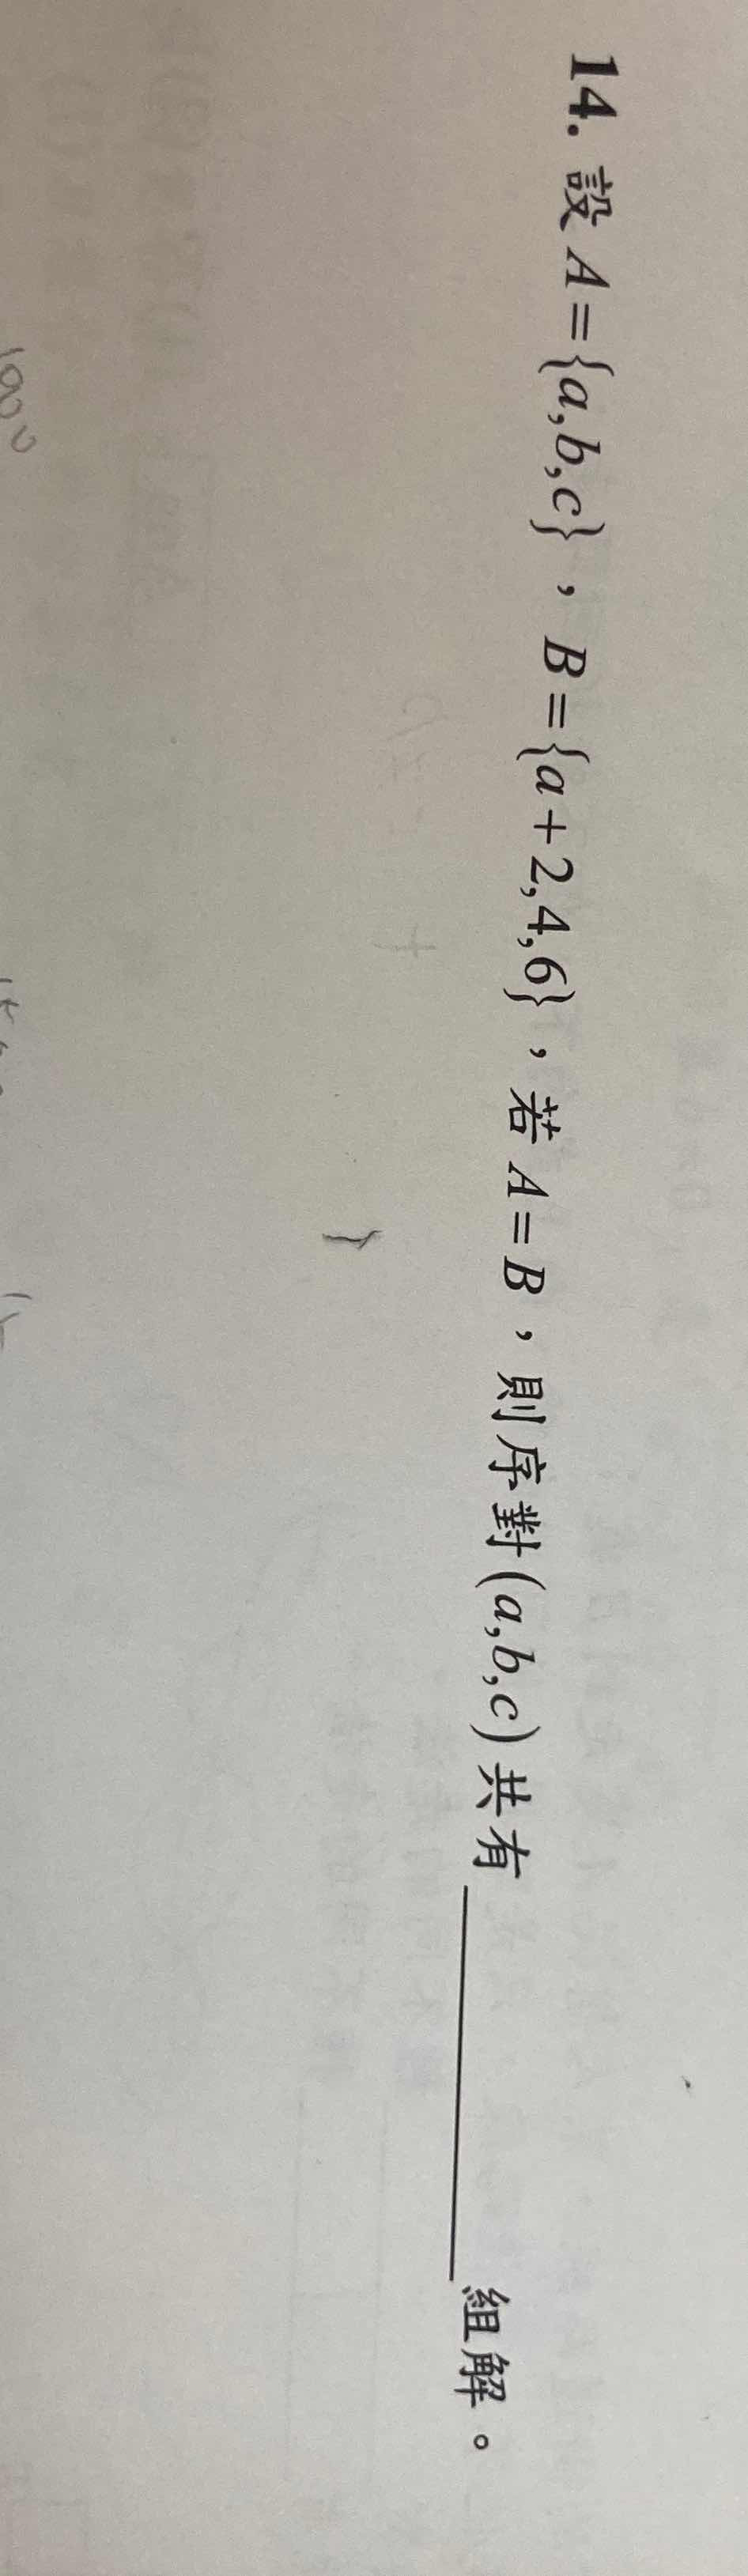 14. 設 A={a,b,c}，B={a+2,4,6}，若 A=B，則序對(a,b,c)共有＿＿＿＿＿＿組解。